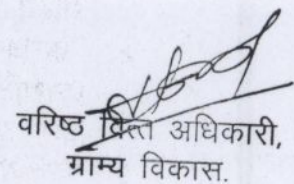 वरिष्ठ वित्त अधिकारी,
ग्राम्य विकास.